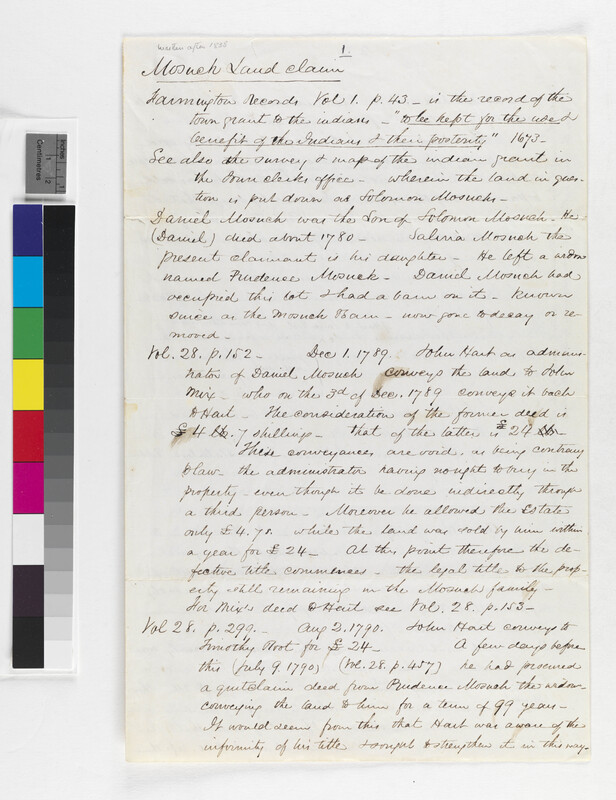 written after 1858
1.
Mosuck Land claim
Farmington Records Vol 1. p. 43 - is the record of the
town grant to the indians - "to be kept for the use &
benefit of the Indians & their posterity" 1673-
See also the survey & map of the indian grant in
the Town clerks office - wherein the land in ques-
tion is put down as Solomon Mosucks-
Daniel Mosuck was the Son of Solomon Mosuck - He
(Daniel) died about 1780 - Saliria Mosuck the
present claimant is his daughter - He left a widow
named Prudence Mosuck - Daniel Mosuck had
occupied this lot & had a barn on it - known
since as the Mosuck Barn - now gone to decay or re-
moved -
Vol. 28. p. 152 - Dec 1. 1789. John Hart as adminis-
trator of Daniel Mosuck conveys the land to John
Mix - who on the 3d of Dec. 1789 conveys it back
to Hart - The consideration of the former deed is
£ 4 . 7 shillings - that of the latter is £ 24
These conveyances are void. as being contrary
to law the administrator having no right to buy in the
property - even though it be done indirectly through
a third person - Moreover he allowed the Estate
only £ 4. 7s. while the land was sold by him within
a year for £ 24 - At this point therefore the de-
fective title commences - the legal title to the prop-
erty still remaining in the Mosuck family -
For Mix's deed to Hart see Vol. 28. p. 153 -
Vol 28. p. 299. - Aug 2. 1790. John Hart conveys to
Timothy Root for £ 24 - A few days before
this (July 9 1790) (Vol. 28. p. 457) he had procured
a quitclaim deed from Prudence Mosuck the widow
conveying the land to him for a term of 99 years -
It would seem from this that Hart was aware of the
infirmity of his title & sought to strengthen it in this way.
Inches
Centimetres
1
2